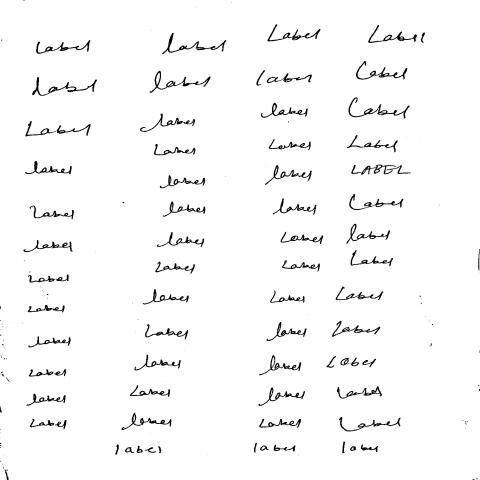 Label label Label Label
Label label label Label
Label label label Label
label Label Label Label
label label label LABEL
label label label Label
label label Label label
label label Label Label
label label Label Label
label Label label label
label label label Label
label Label label Label
Label label Label Label
label label label